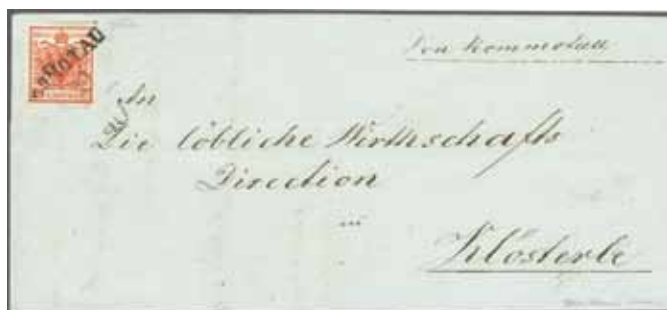 Von Kommotau
An
Die löbliche Wirthschafts
Direction
in
Klösterle